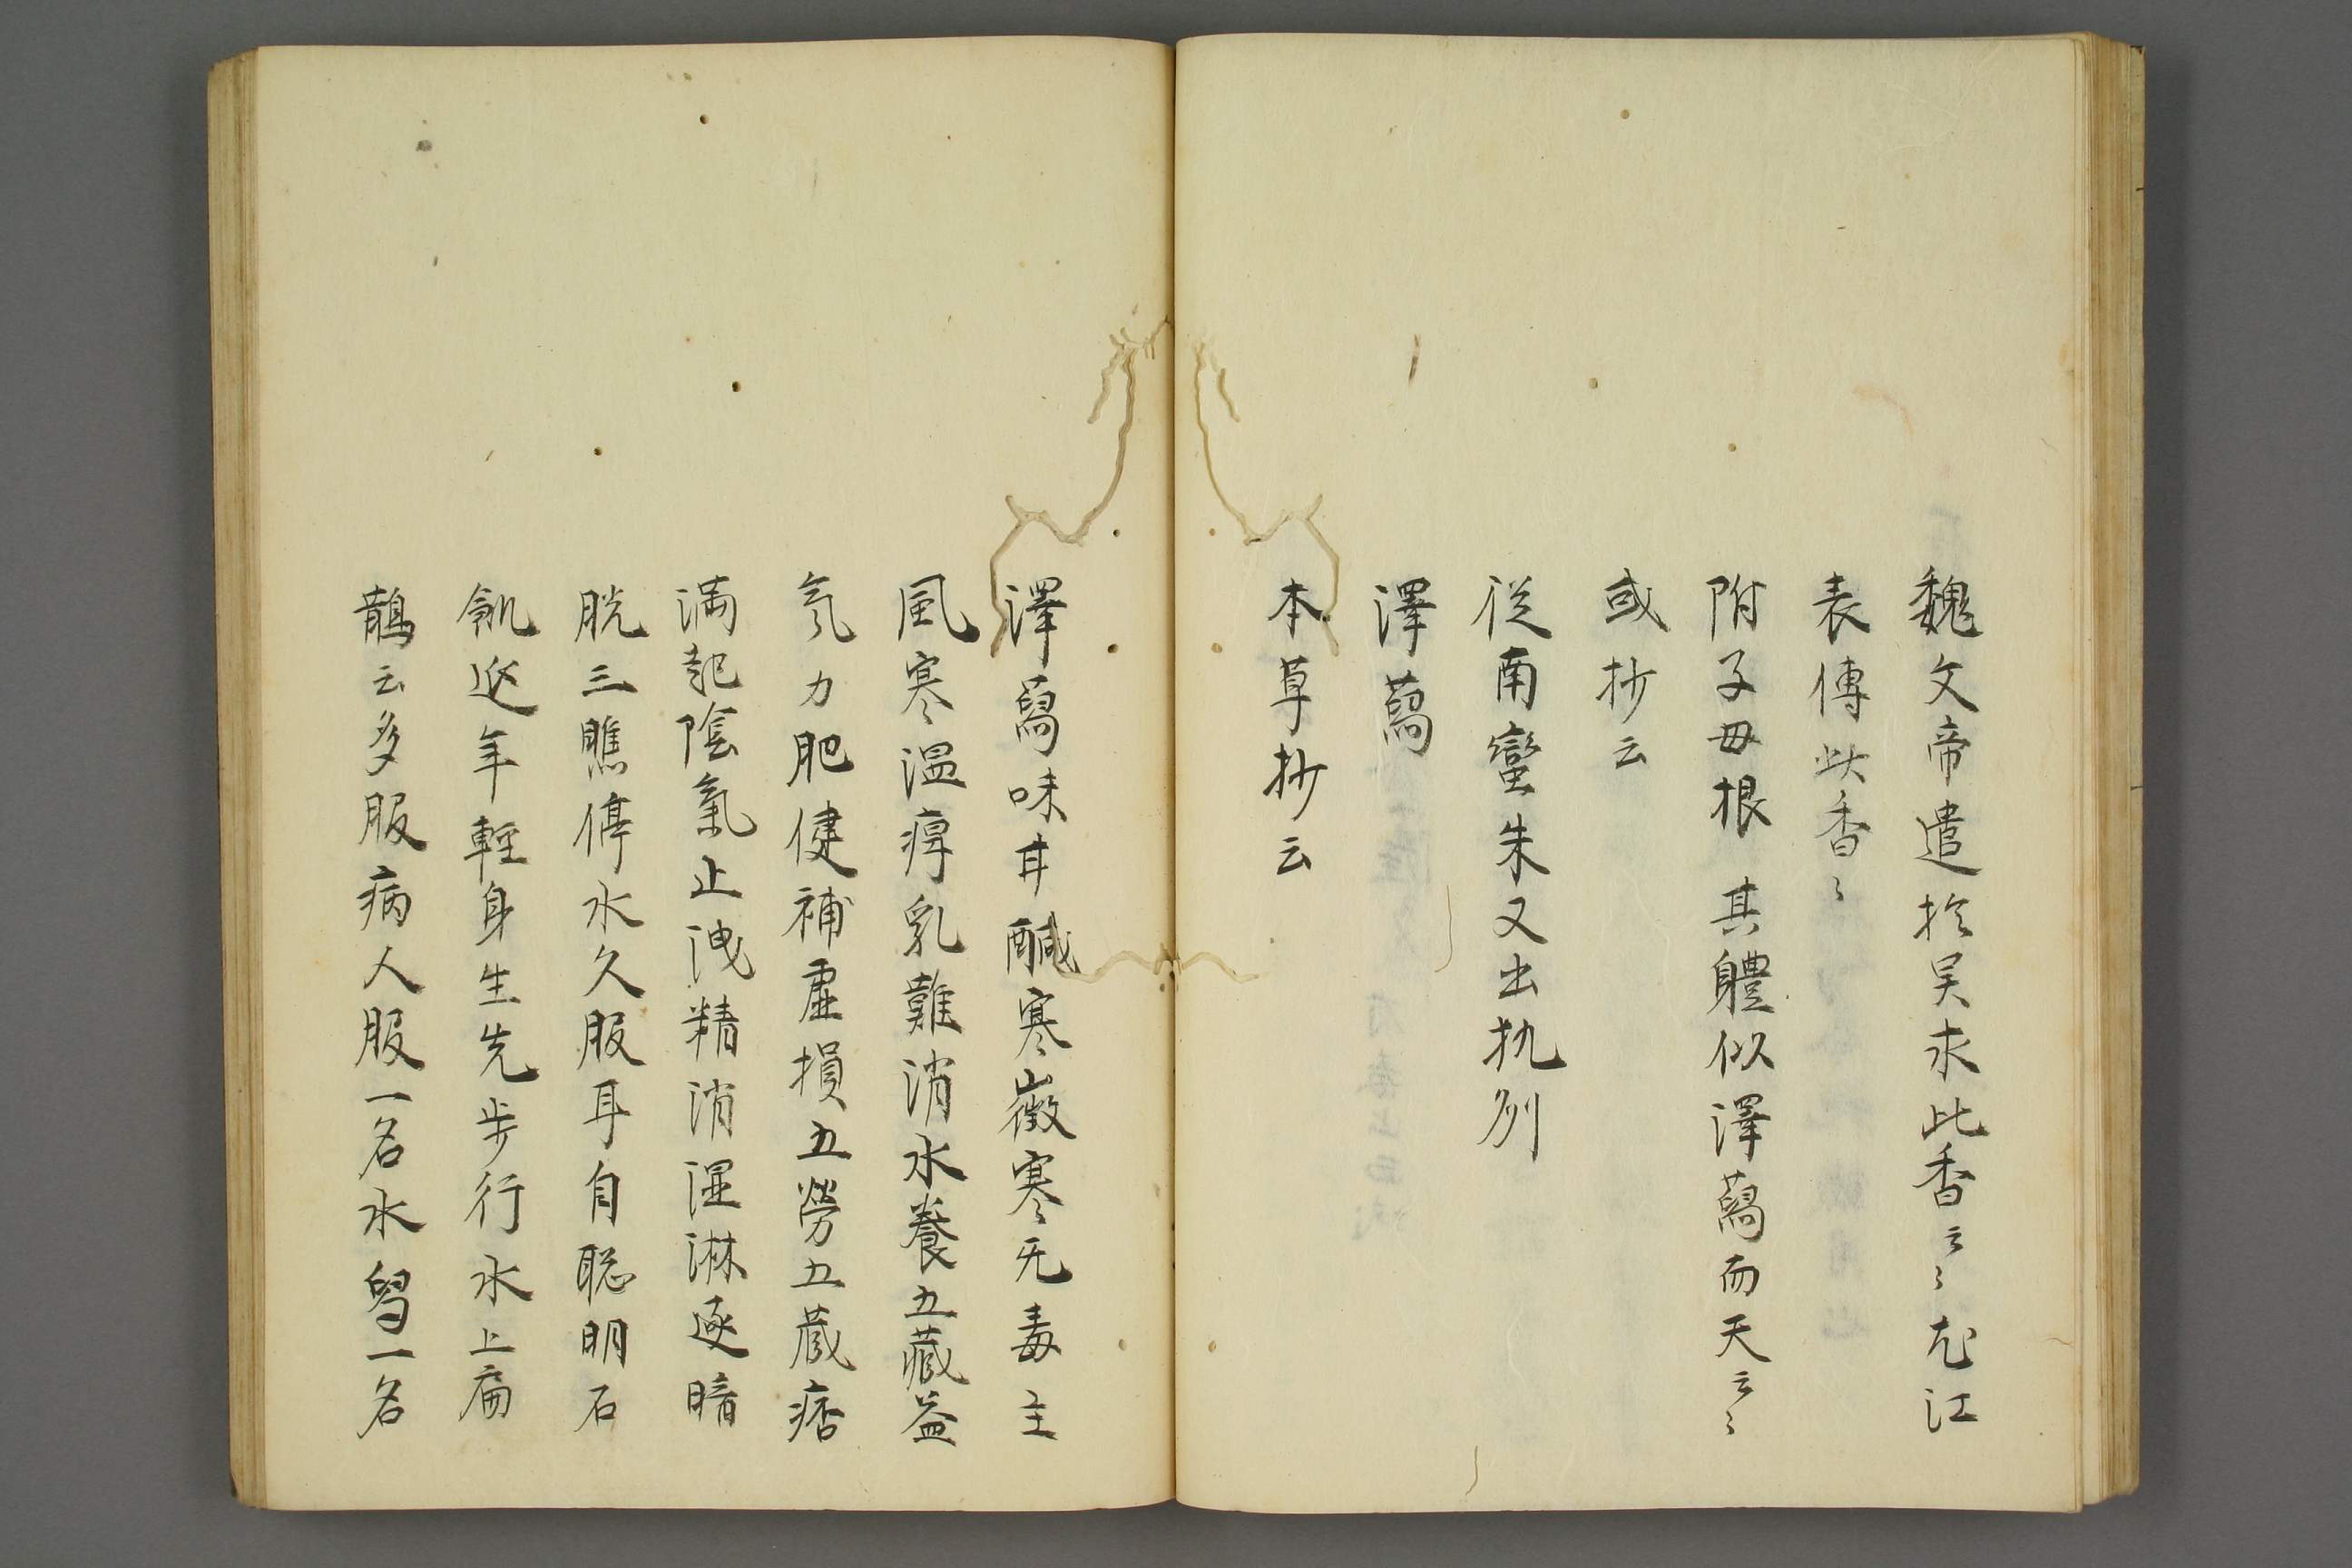 魏文帝遣於吴求此香云〻尤江
表傳此香〻
附子毋根 其體似澤蕮而天云〻
或抄云
従南蠻朱又出执列
澤蕮
本草抄云
澤蕮味甘醎寒嶶寒无毒主
風寒温痺乳難消水養五蔵益
気力肥健補虚損五勞五蔵痞
満起陰氣止洩精消湿淋逐
胱三瞧停水久服耳自聡明石
飢返年輕身生先步行水上扁
鵲云多服病人服一名水舄一名